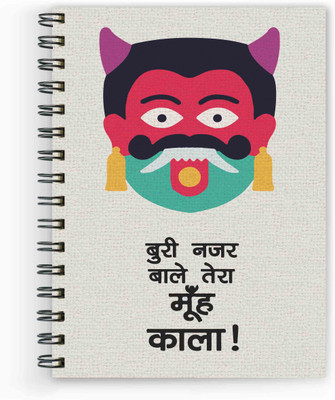 बुरी नजर
बाले तेरा
मूँह
काला!